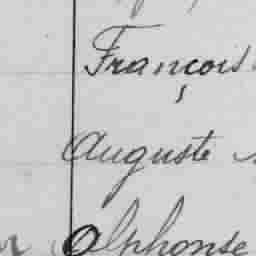 François
Auguste
Alphonse